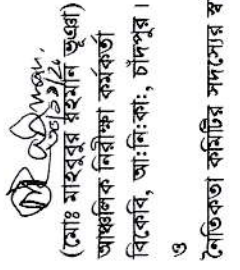 (মোঃ মাহবুবুর রহমান ভূঞা)
আঞ্চলিক নিরীক্ষা কর্মকর্তা
বিকেবি, আঃনিঃকাঃ, চাঁদপুর।
ও
নৈতিকতা কমিটির সদস্যের স্ব